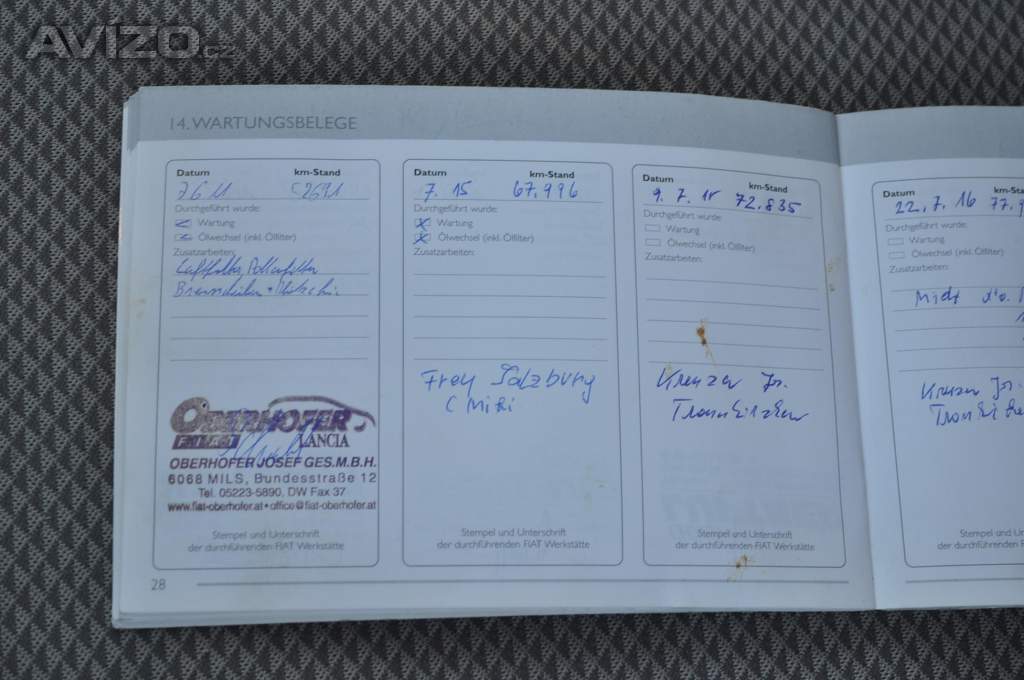 AVIZO.cz
14. WARTUNGSBELEGE
Datum km-Stand
7 6 11
Durchgeführt wurde:
Wartung
Ölwechsel (inkl. Ölfilter)
Zusatzarbeiten:
Luftfilter, Pollenfilter
OBERHOFER
FIAT LANCIA
OBERHOFER JOSEF GES.M.B.H.
6068 MILS, Bundesstraße 12
Tel. 05223-5890, DW Fax 37
www.fiat-oberhofer.at • office@fiat-oberhofer.at
Stempel und Unterschrift
der durchführenden FIAT Werkstätte
28
Datum km-Stand
7. 15 67.996
Durchgeführt wurde:
Wartung
Ölwechsel (inkl. Ölfilter)
Zusatzarbeiten:
Frey Salzburg
Stempel und Unterschrift
der durchführenden FIAT Werkstätte
Datum km-Stand
9. 7. 15 72.835
Durchgeführt wurde:
Wartung
Ölwechsel (inkl. Ölfilter)
Zusatzarbeiten:
Stempel und Unterschrift
der durchführenden FIAT Werkstätte
Datum km-Sta
22. 7. 16 77.9
Durchgeführt wurde:
Wartung
Ölwechsel (inkl. Ölfilter)
Zusatzarbeiten:
Stempel und
der durchführenden